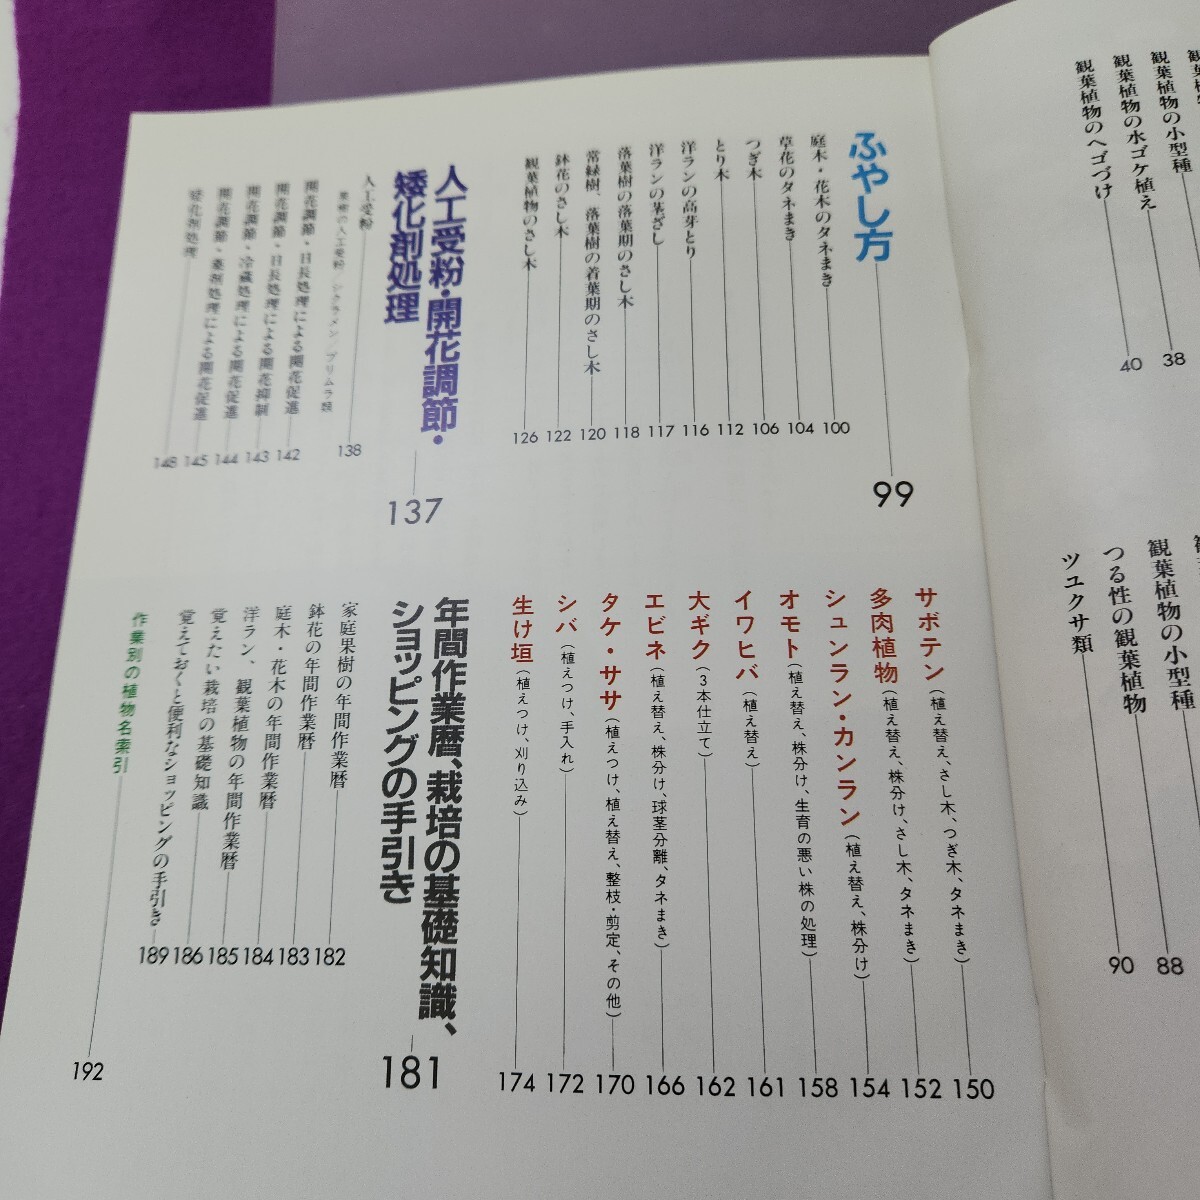 観葉植物の小型種
38
観葉植物の水ゴケ植え
40
観葉植物のヘゴづけ
観葉植物の小型種
88
つる性の観葉植物
90
ツユクサ類
ふやし方
99
庭木・花木のタネまき
100
草花のタネまき
104
つぎ木
106
とり木
112
洋ランの高芽とり
116
洋ランの茎ざし
117
落葉樹の落葉期のさし木
118
常緑樹、落葉樹の着葉期のさし木
120
鉢花のさし木
122
観葉植物のさし木
126
人工受粉・開花調節・
矮化剤処理
137
人工受粉
138
果樹の人工受粉／シクラメン／プリムラ類
開花調節・日長処理による開花促進
142
開花調節・日長処理による開花抑制
143
開花調節・冷蔵処理による開花促進
144
開花調節・薬剤処理による開花促進
145
矮化剤処理
148
サボテン(植え替え、さし木、つぎ木、タネまき)
150
多肉植物(植え替え、株分け、さし木、タネまき)
152
シュンラン・カンラン(植え替え、株分け)
154
オモト(植え替え、株分け、生育の悪い株の処理)
158
イワヒバ(植え替え)
161
大ギク(3本仕立て)
162
エビネ(植え替え、株分け、球茎分離、タネまき)
166
タケ・ササ(植えつけ、植え替え、整枝・剪定、その他)
170
シバ(植えつけ、手入れ)
172
生け垣(植えつけ、刈り込み)
174
年間作業暦、栽培の基礎知識、
ショッピングの手引き
181
家庭果樹の年間作業暦
182
鉢花の年間作業暦
183
庭木・花木の年間作業暦
184
洋ラン、観葉植物の年間作業暦
185
覚えたい栽培の基礎知識
186
覚えておくと便利なショッピングの手引き
189
作業別の植物名索引
192